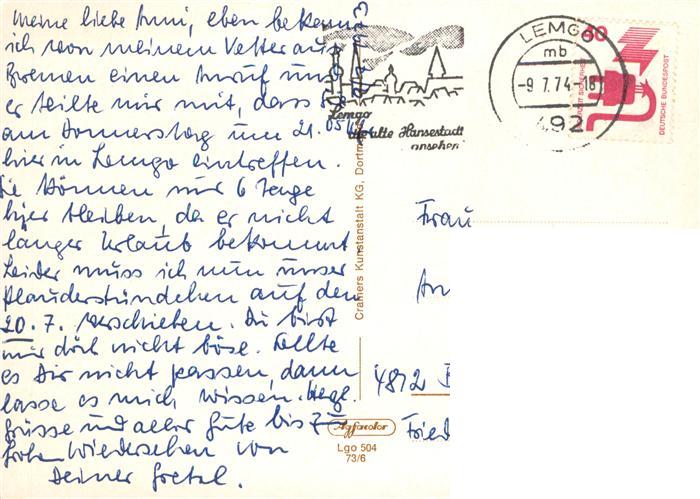 Meine liebe Anni, eben bekam
ich von meinem Vetter aus
Bremen einen Anruf und
er teilte mir mit, dass sie
am Donnerstag um 21.05 Uhr
hier in Lemgo eintreffen.
Sie können nur 6 Tage
hier bleiben, da er nicht
länger Urlaub bekommt.
Leider muss ich nun unser
Plauderstündchen auf den
20. 7. verschieben. Du bist
mir doch nicht böse. Sollte
es Dir nicht passen, dann
lasse es mich wissen. Herzl.
Grüsse und alles Gute bis zum
frohen Wiedersehen von
Deiner Gretel.
1973
Lemgo
die alte Hansestadt
ansehen
LEMGO
mb
-9.7.74-18
492
60
DEUTSCHE BUNDESPOST
Cramers Kunstanstalt KG, Dortm
Frau
An
4812 B
Fried
Agfacolor
Lgo 504
73/6